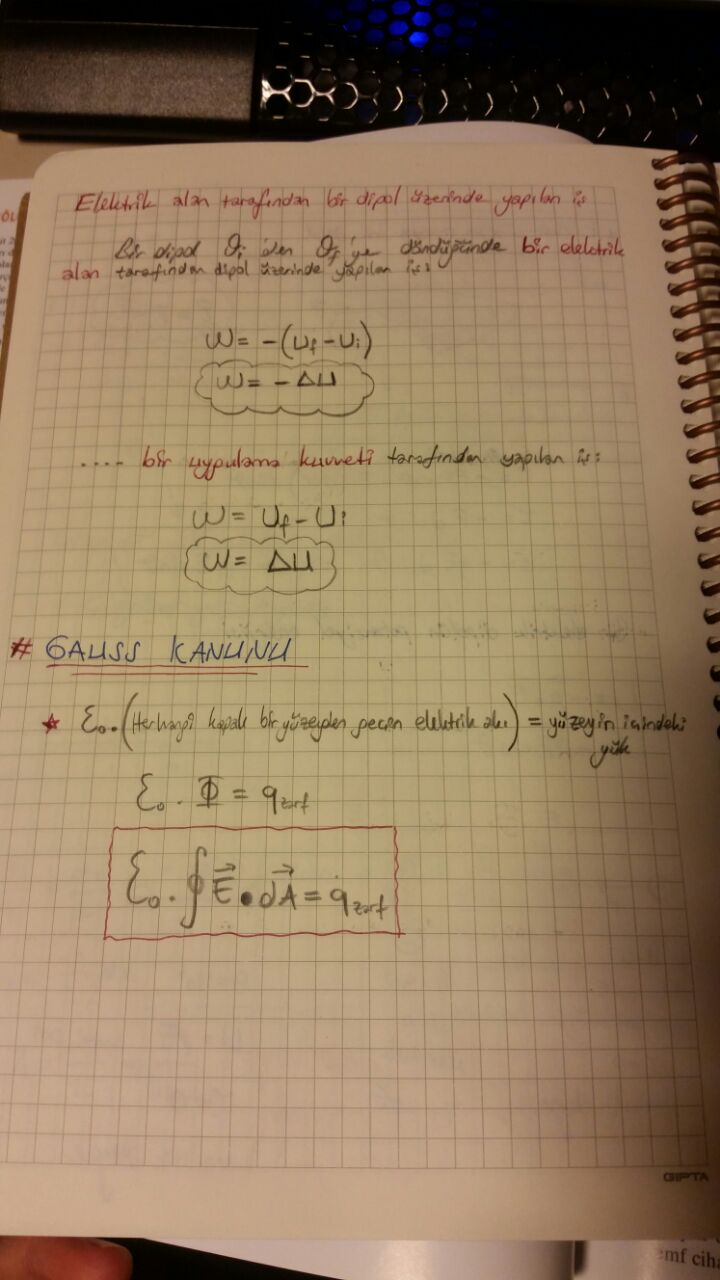 Elektrik alan tarafından bir dipol üzerinde yapılan iş
Bir dipol θi 'den θf 'ye döndüğünde bir elektrik
alan tarafından dipol üzerinde yapılan iş:
W = -(Uf - Ui)
W = - ΔU
.... bir uygulama kuvveti tarafından yapılan iş:
W = Uf - Ui
W = ΔU
# GAUSS KANUNU
★ Ɛ₀.(Herhangi kapalı bir yüzeyden geçen elektrik akı) = yüzeyin içindeki
yük
Ɛ₀. Φ = qzarf
Ɛ₀. ∮ E⃗ • dA⃗ = qzarf
GIPTA
emf cih